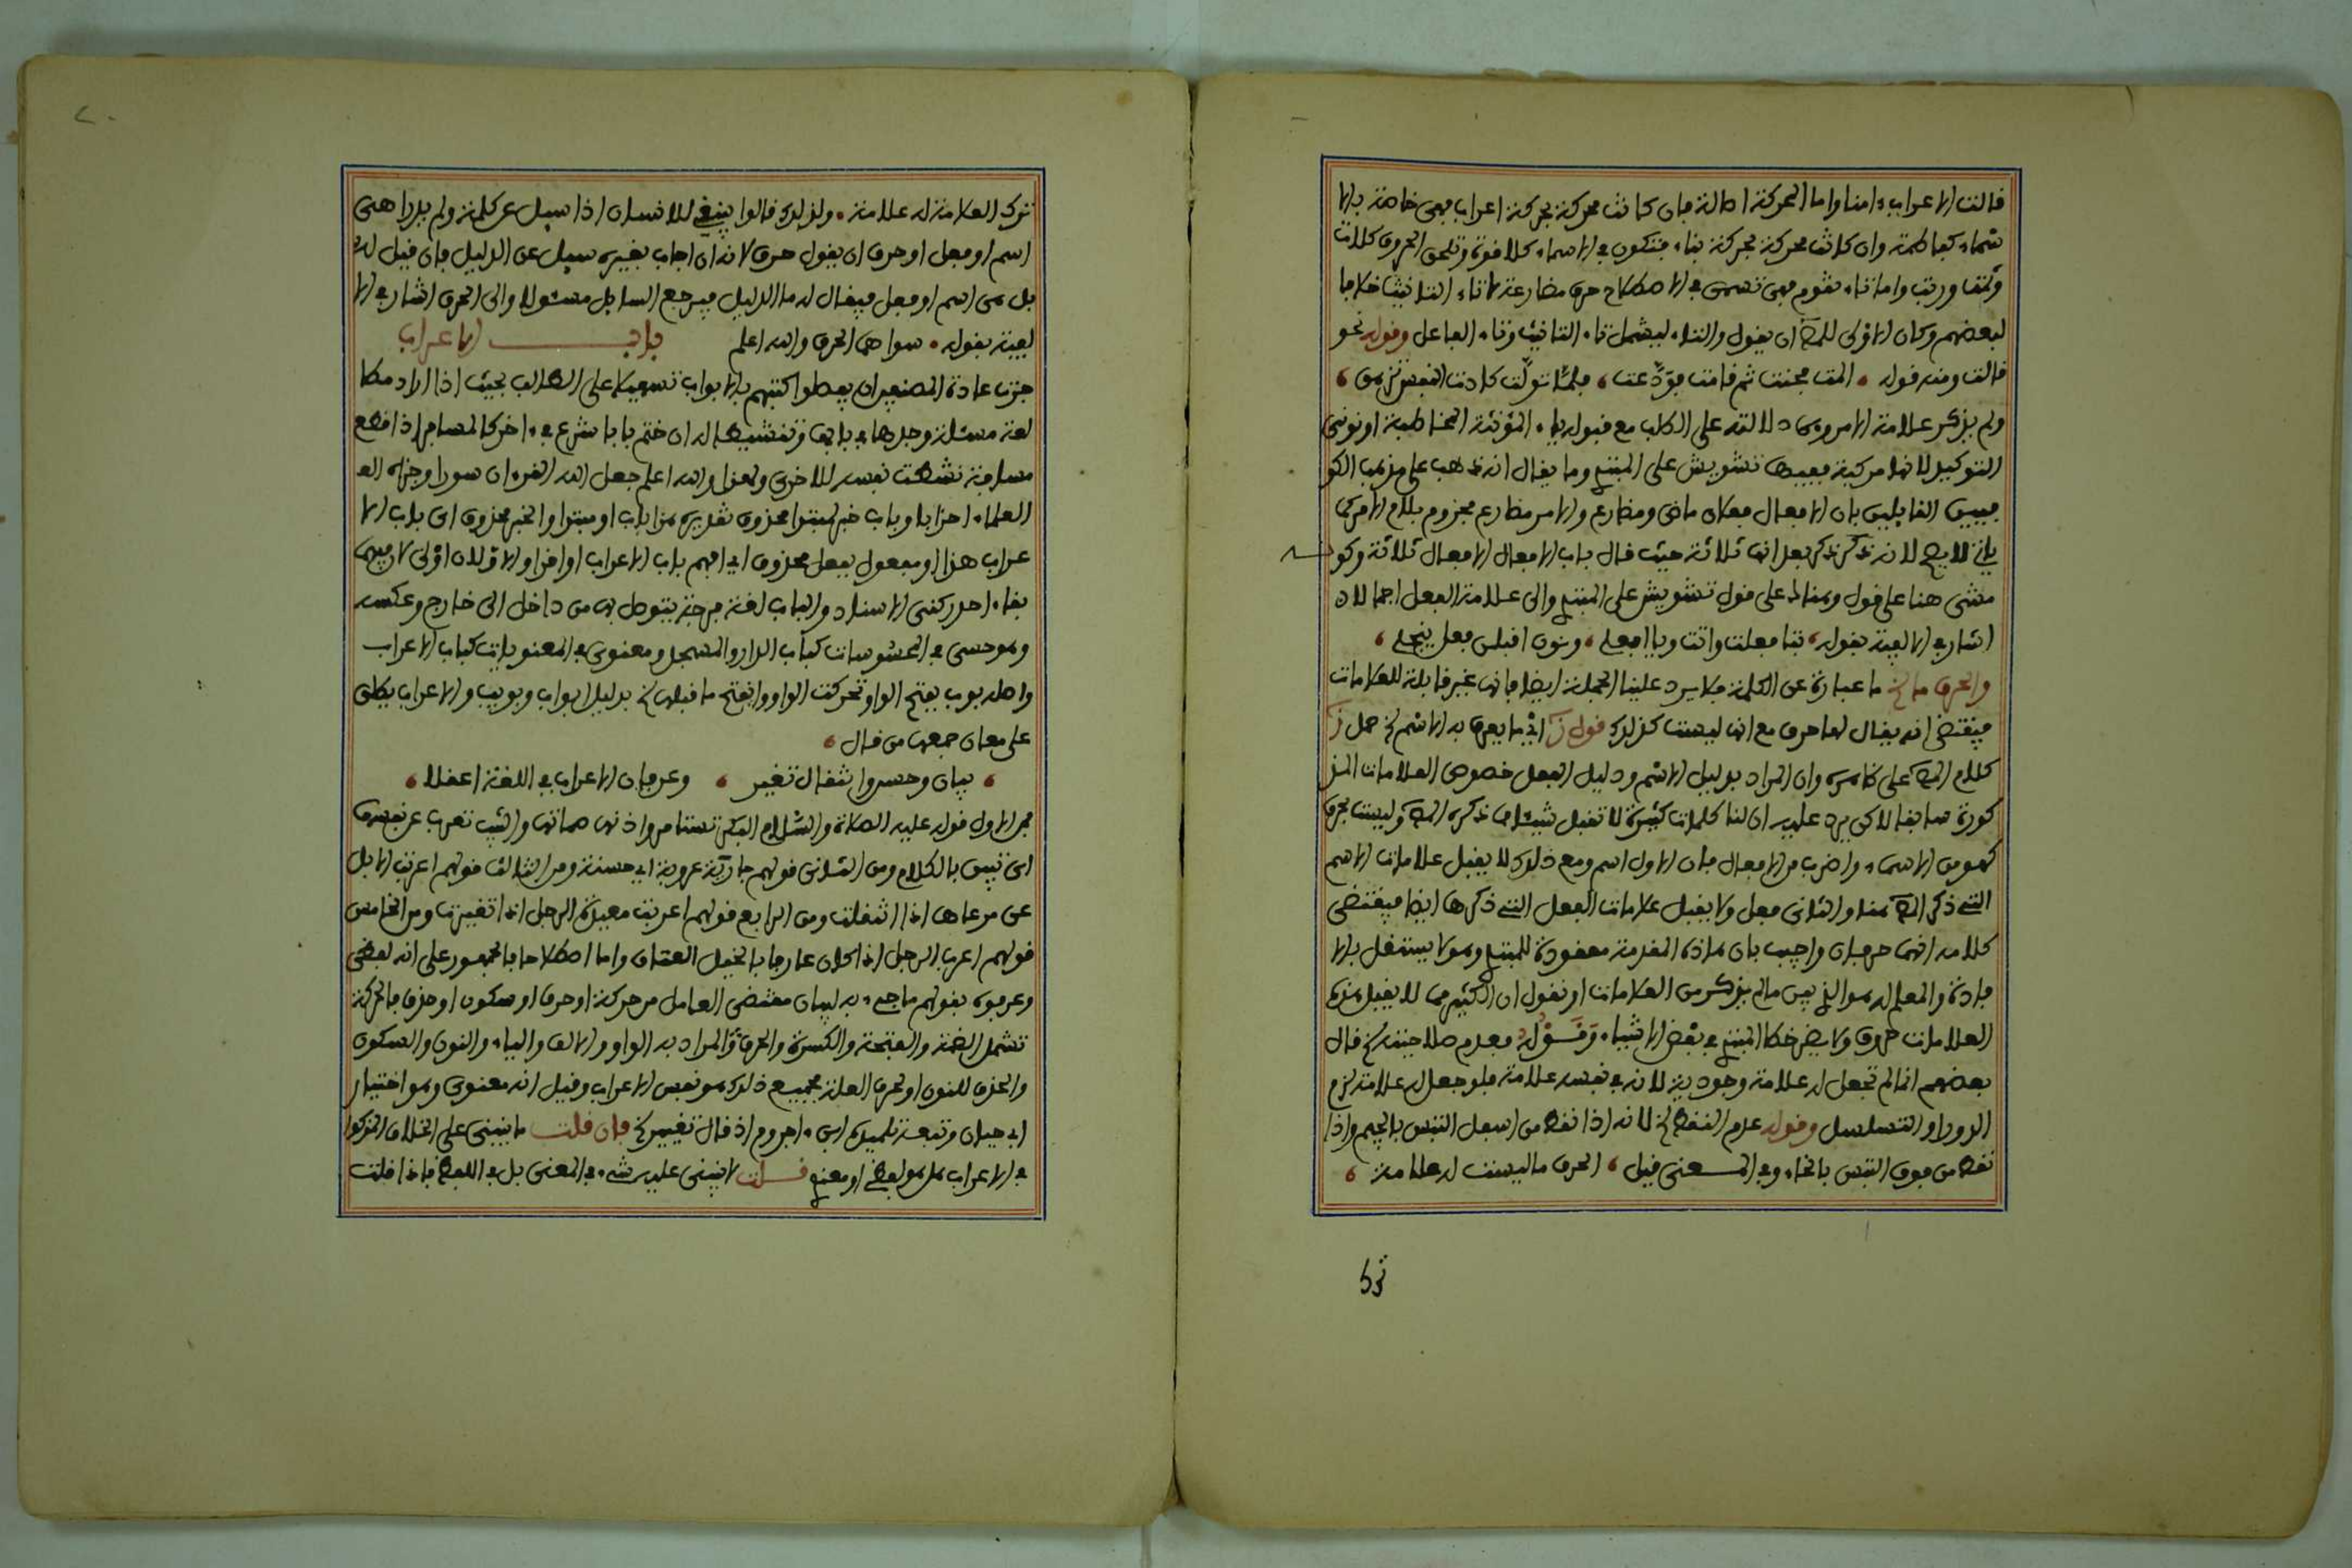 قالت الاعراب ءامنا واما الحركة اصالة فان كانت محركة بحركة اعراب فهى خاصة بالا
سماء كفاطمة وان كانت محركة بحركة بناء فتكون في الاسماء كلا قوة وتلحق الحروف كلات
وثمت وربت واما تاء تقوم فهى تسمى في الاصطلاح حرف مضارعة لا تاء التانيث خلافا
لبعضهم وكان الاولى للمص ان يقول والتاء ليشمل تاء التانيث وتاء الفاعل وقوله نحو
قالت ومنه قوله المت فحيت ثم قامت فودعت فلما تولت كادت النفس تزهق
ولم يذكر علامة الامر وهى دلالته على الطلب مع قبوله ياء المؤنثة المخاطبة او نونى
التوكيد لانها مركبة ففيها تشويش على المبتدى وما يقال انه ذهب على مذهب الكو
فيين القايلين بان الافعال فعلان ماض ومضارع والامر مضارع مجزوم بلام الامر كما
ياتى لا يصح لانه ذكر ذكر بعد انها ثلاثة حيث قال باب الافعال الافعال ثلاثة وكونه
مشى هنا على قول وهناك على قول تشويش على المبتدى والى علامة الفعل اجمالا
اشار في الالفية بقوله بتا فعلت واتت ويا افعلى ونون اقبلن فعل ينجلى
والحرف ما لخ ما عبارة عن الكلمة فلا يرد علينا الجملة ايضا فانها غير قابلة للعلامات
فيقتضى انه يقال لها حرف مع انها ليست كذلك قوله اى ما يعرف به الاسم لخ حمل
كلام المص على ظاهره وان المراد بدليل الاسم ودليل الفعل خصوص العلامات المذ
كورة سابقا لاكن يرد عليه ان لنا كلمات كثيرة لا تقبل شيئا مما ذكره المص وليست بحرف
كهو من الاسماء واضرب من الافعال فان الاول اسم ومع ذلك لا يقبل علامات الاسم
التى ذكر المص هنا والثانى فعل ولا يقبل علامات الفعل التى ذكرها ايضا فيقتضى
كلامه انهما حرفان واجيب بان هاذه المقدمة معقودة للمبتدى وهو لا يستقل بالا
فادة والمعلم له هو الذى يبين ما لم يذكر من العلامات او نقول ان الكثير مما لا يقبل هذه
العلامات حروف ولا يضر خطا المبتدى في بعض الاشياء وقوله فعدم صلاحيته لخ قال
بعضهم انما لم تجعل له علامة وجودية لانه في نفسه علامة فلو جعل له علامة لزم
الدور او التسلسل وقوله عدم النقط لخ لانه اذا نقط من اسفل التبس بالجيم واذا
نقط من فوق التبس بالخاء وفي المعنى قيل الحرف ما ليست له علامة
ترك العلامة له علامة ولذلك قالوا ينبغى للانسان اذا سيل عن كلمة ولم يدر اهى
اسم او فعل او حرف ان يقول حرف لانه ان اجاب بغيره سيل عن الدليل فان قيل له
بل هى اسم او فعل فيقال له ما الدليل فيرجع السايل مسئولا والى الحرف اشار في الا
لفية بقوله سواهما الحرف والله اعلم باب الاعراب
جرت عادة المصنفين ان يفصلوا كتبهم بالابواب تسهيلا على الطالب بحيث اذا اراد مطا
لعة مسئلة وجدها في بابها وتنشيطا له ان ختم بابا شرع في ءاخر كالمسافر اذا قطع
مسافة نشطت نفسه للاخرى ولهذا والله اعلم جعل الله القرءان سورا وجزاه العـ
العلماء احزابا وباب خبر لمبتدا محذوف تقديره هذا باب او مبتدا والخبر محذوف اى باب الا
عراب هذا او مفعول بفعل محذوف اى افهم باب الاعراب او اقرا والاولان اولى لان فيهما
بقاء احد ركنى الاسناد والباب لغة فرجة يتوصل بها من داخل الى خارج وعكسه
وهو حسى في المحسوسات كباب الدار والمسجد ومعنوى في المعنويات كباب الاعراب
واصله بوب بفتح الواو تحركت الواو وانفتح ما قبلها لخ بدليل ابواب وبويب والاعراب يطلق
على معان جمعها من قال
بيان وحسن وانتقال تغير وعرفان الاعراب في اللغة اعقلا
فمن الاول قوله عليه الصلاة والسلام البكر تستامر واذنها صماتها والثيب تعرب عن نفسها
اى تبين بالكلام ومن الثانى قولهم جارية عروبة اى حسنة ومن الثالث قولهم اعربت الابل
عن مرعاها اذا انتقلت ومن الرابع قولهم اعربت معدة الرجل اذا تغيرت ومن الخامس
قولهم اعرب الرجل اذا كان عارفا بالخيل العتاق واما اصطلاحا فالجمهور على انه لفظى
وعرفوه بقولهم ما جىء به لبيان مقتضى العامل من حركة او حرف او سكون او حذف فالحركة
تشمل الضمة والفتحة والكسرة والحرف المراد به الواو والالف والياء والنون والسكون
والحذف للنون او لحرف العلة فجميع ذلك هو نفس الاعراب وقيل انه معنوى وهو اختيار
ابى حيان وتبعه تلميذه ابن ءاجروم اذ قال تغيير لخ فان قلت ما ينبنى على الخلاف المذكور
في الاعراب هل هو لفظى او معنوى قلت لا ينبنى عليه شىء في المعنى بل في اللفظ فاذا قلت